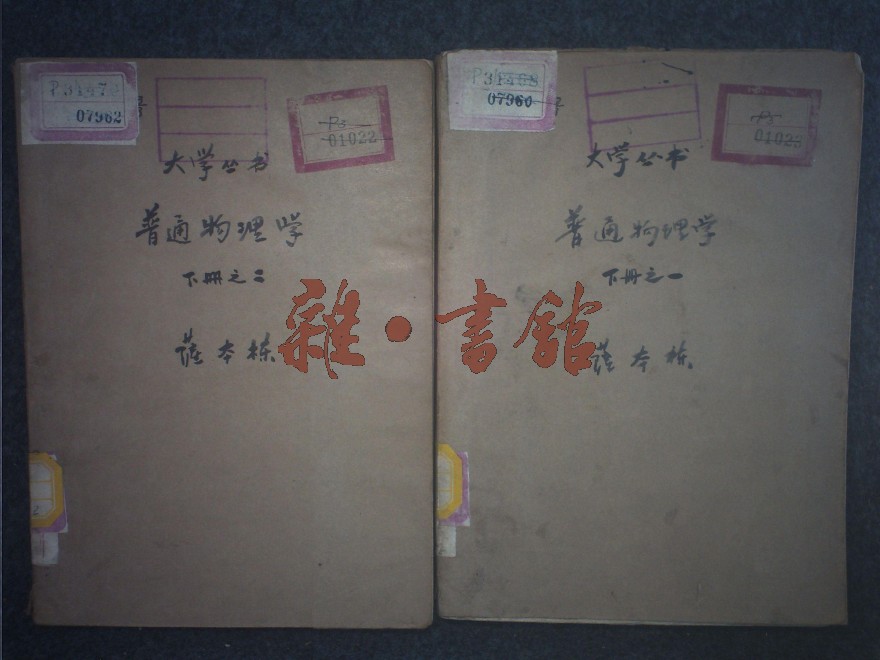 P31472
07962
P5
01022
大学丛书
普通物理学
下册之二
萨本栋
P31468
07960
P5
01023
大学丛书
普通物理学
下册之一
萨本栋
雜·書館